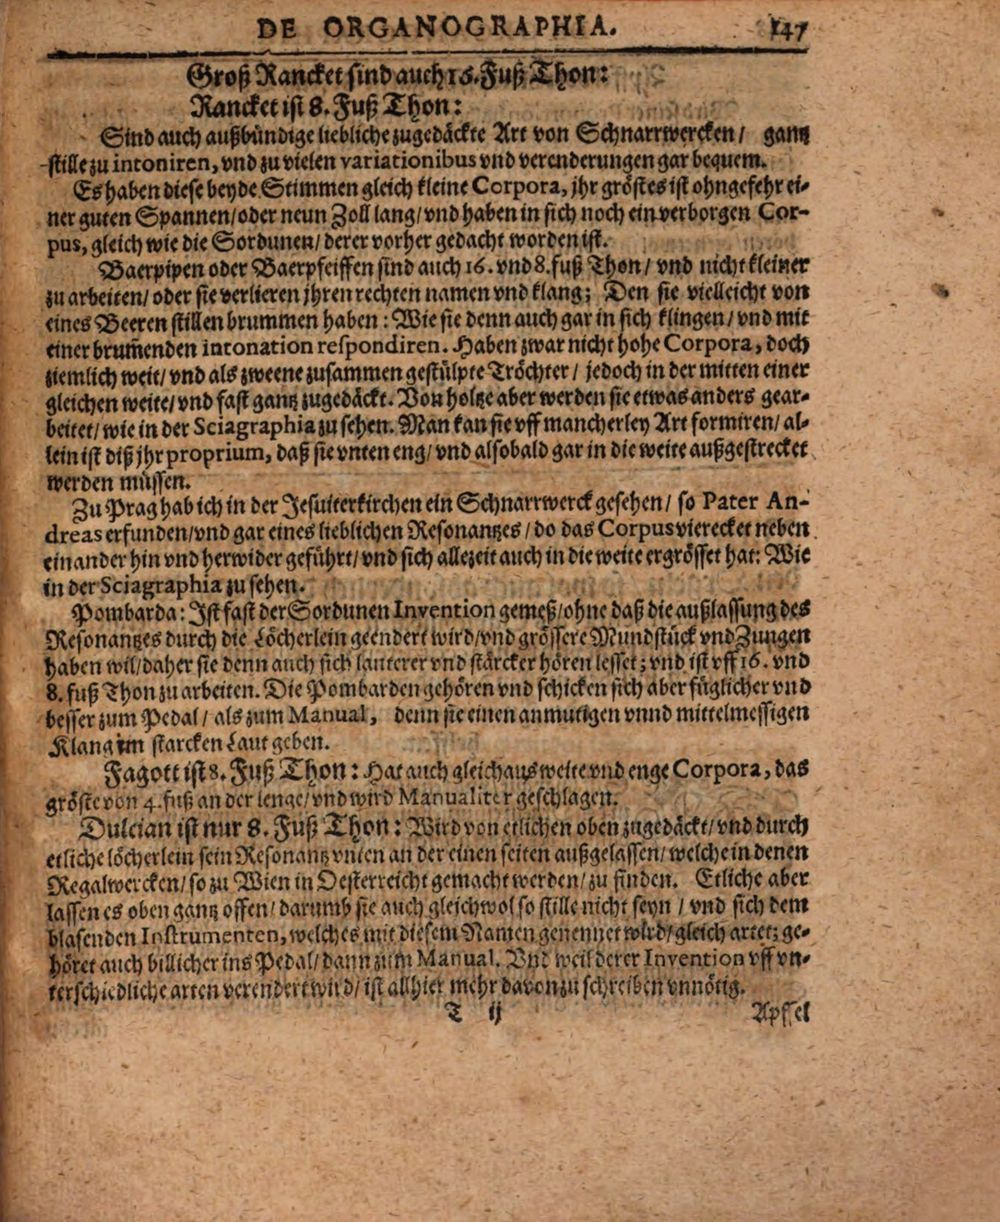 DE ORGANOGRAPHIA. 147
Groß Rancket sind auch 16. Fuß Thon:
Rancket ist 8. Fuß Thon:
Sind auch außbündige liebliche zugedäckte Art von Schnarrwercken/ gantz
stille zu intoniren, vnd zu vielen variationibus vnd verenderungen gar bequem.
Es haben diese beyde Stimmen gleich kleine Corpora, jhr gröstes ist ohngefehr ei-
ner guten Spannen/ oder neun Zoll lang/ vnd haben in sich noch ein verborgen Cor-
pus, gleich wie die Sordunen/ derer vorher gedacht worden ist.
Baerpipen oder Baerpfeiffen sind auch 16. vnd 8. fuß Thon/ vnd nicht kleiner
zu arbeiten/ oder sie verlieren jhren rechten namen vnd klang; Den sie vielleicht von
eines Beeren stillen brummen haben: Wie sie denn auch gar in sich klingen/ vnd mit
einer brum̃enden intonation respondiren. Haben zwar nicht hohe Corpora, doch
ziemlich weit/ vnd als zweene zusammen gestülpte Tröchter/ jedoch in der mitten einer
gleichen weite/ vnd fast gantz zugedäckt. Von holtze aber werden sie etwas anders gear-
beitet/ wie in der Sciagraphia zu sehen. Man kan sie vff mancherley Art formiren/ al-
lein ist diß jhr proprium, daß sie vnten eng/ vnd alsobald gar in die weite außgestrecket
werden müssen.
Zu Prag hab ich in der Jesuiterkirchen ein Schnarrwerck gesehen/ so Pater An-
dreas erfunden/ vnd gar eines lieblichen Resonantzes/ do das Corpus vierecket neben
einander hin vnd herwider geführt/ vnd sich allezeit auch in die weite ergrösset hat: Wie
in der Sciagraphia zu sehen.
Pombarda: Ist fast der Sordunen Invention gemeß/ ohne daß die außlassung des
Resonantzes durch die Löcherlein geendert wird/ vnd grössere Mundstück vnd Zungen
haben wil/ daher sie denn auch sich lauterer vnd stärcker hören lesset; vnd ist vff 16. vnd
8. fuß Thon zu arbeiten. Die Pombarden gehören vnd schicken sich aber füglicher vnd
besser zum Pedal/ als zum Manual, denn sie einen anmutigen vnnd mittelmessigen
Klang im starcken Laut geben.
Fagott ist 8. Fuß Thon: Hat auch gleichaus weite vnd enge Corpora, das
gröste von 4. fuß an der lenge/ vnd wird Manualiter geschlagen.
Dulcian ist nur 8. Fuß Thon: Wird von etlichen oben zugedäckt/ vnd durch
etliche löcherlein sein Resonantz vnten an der einen seiten außgelassen/ welche in denen
Regalwercken/ so zu Wien in Oesterreicht gemacht werden/ zu finden. Etliche aber
lassen es oben gantz offen/ darumb sie auch gleichwol so stille nicht seyn/ vnd sich dem
blasenden Instrumenten, welches mit diesem Namen genennet wird/ gleich artet; ge-
höret auch billicher ins Pedal/ dann zum Manual. Vnd weil derer Invention vff vn-
terschiedliche arten verendert wird/ ist allhier mehr davon zu schreiben vnnötig.
T ij Apffel